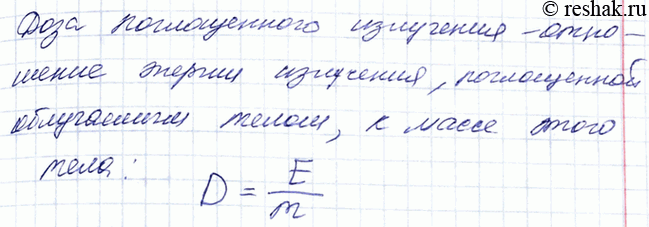 © reshak.ru
Доза поглощенного излучения - отно-
шение энергии излучения, поглощенной
облучаемым телом, к массе этого
тела:
D = E/m